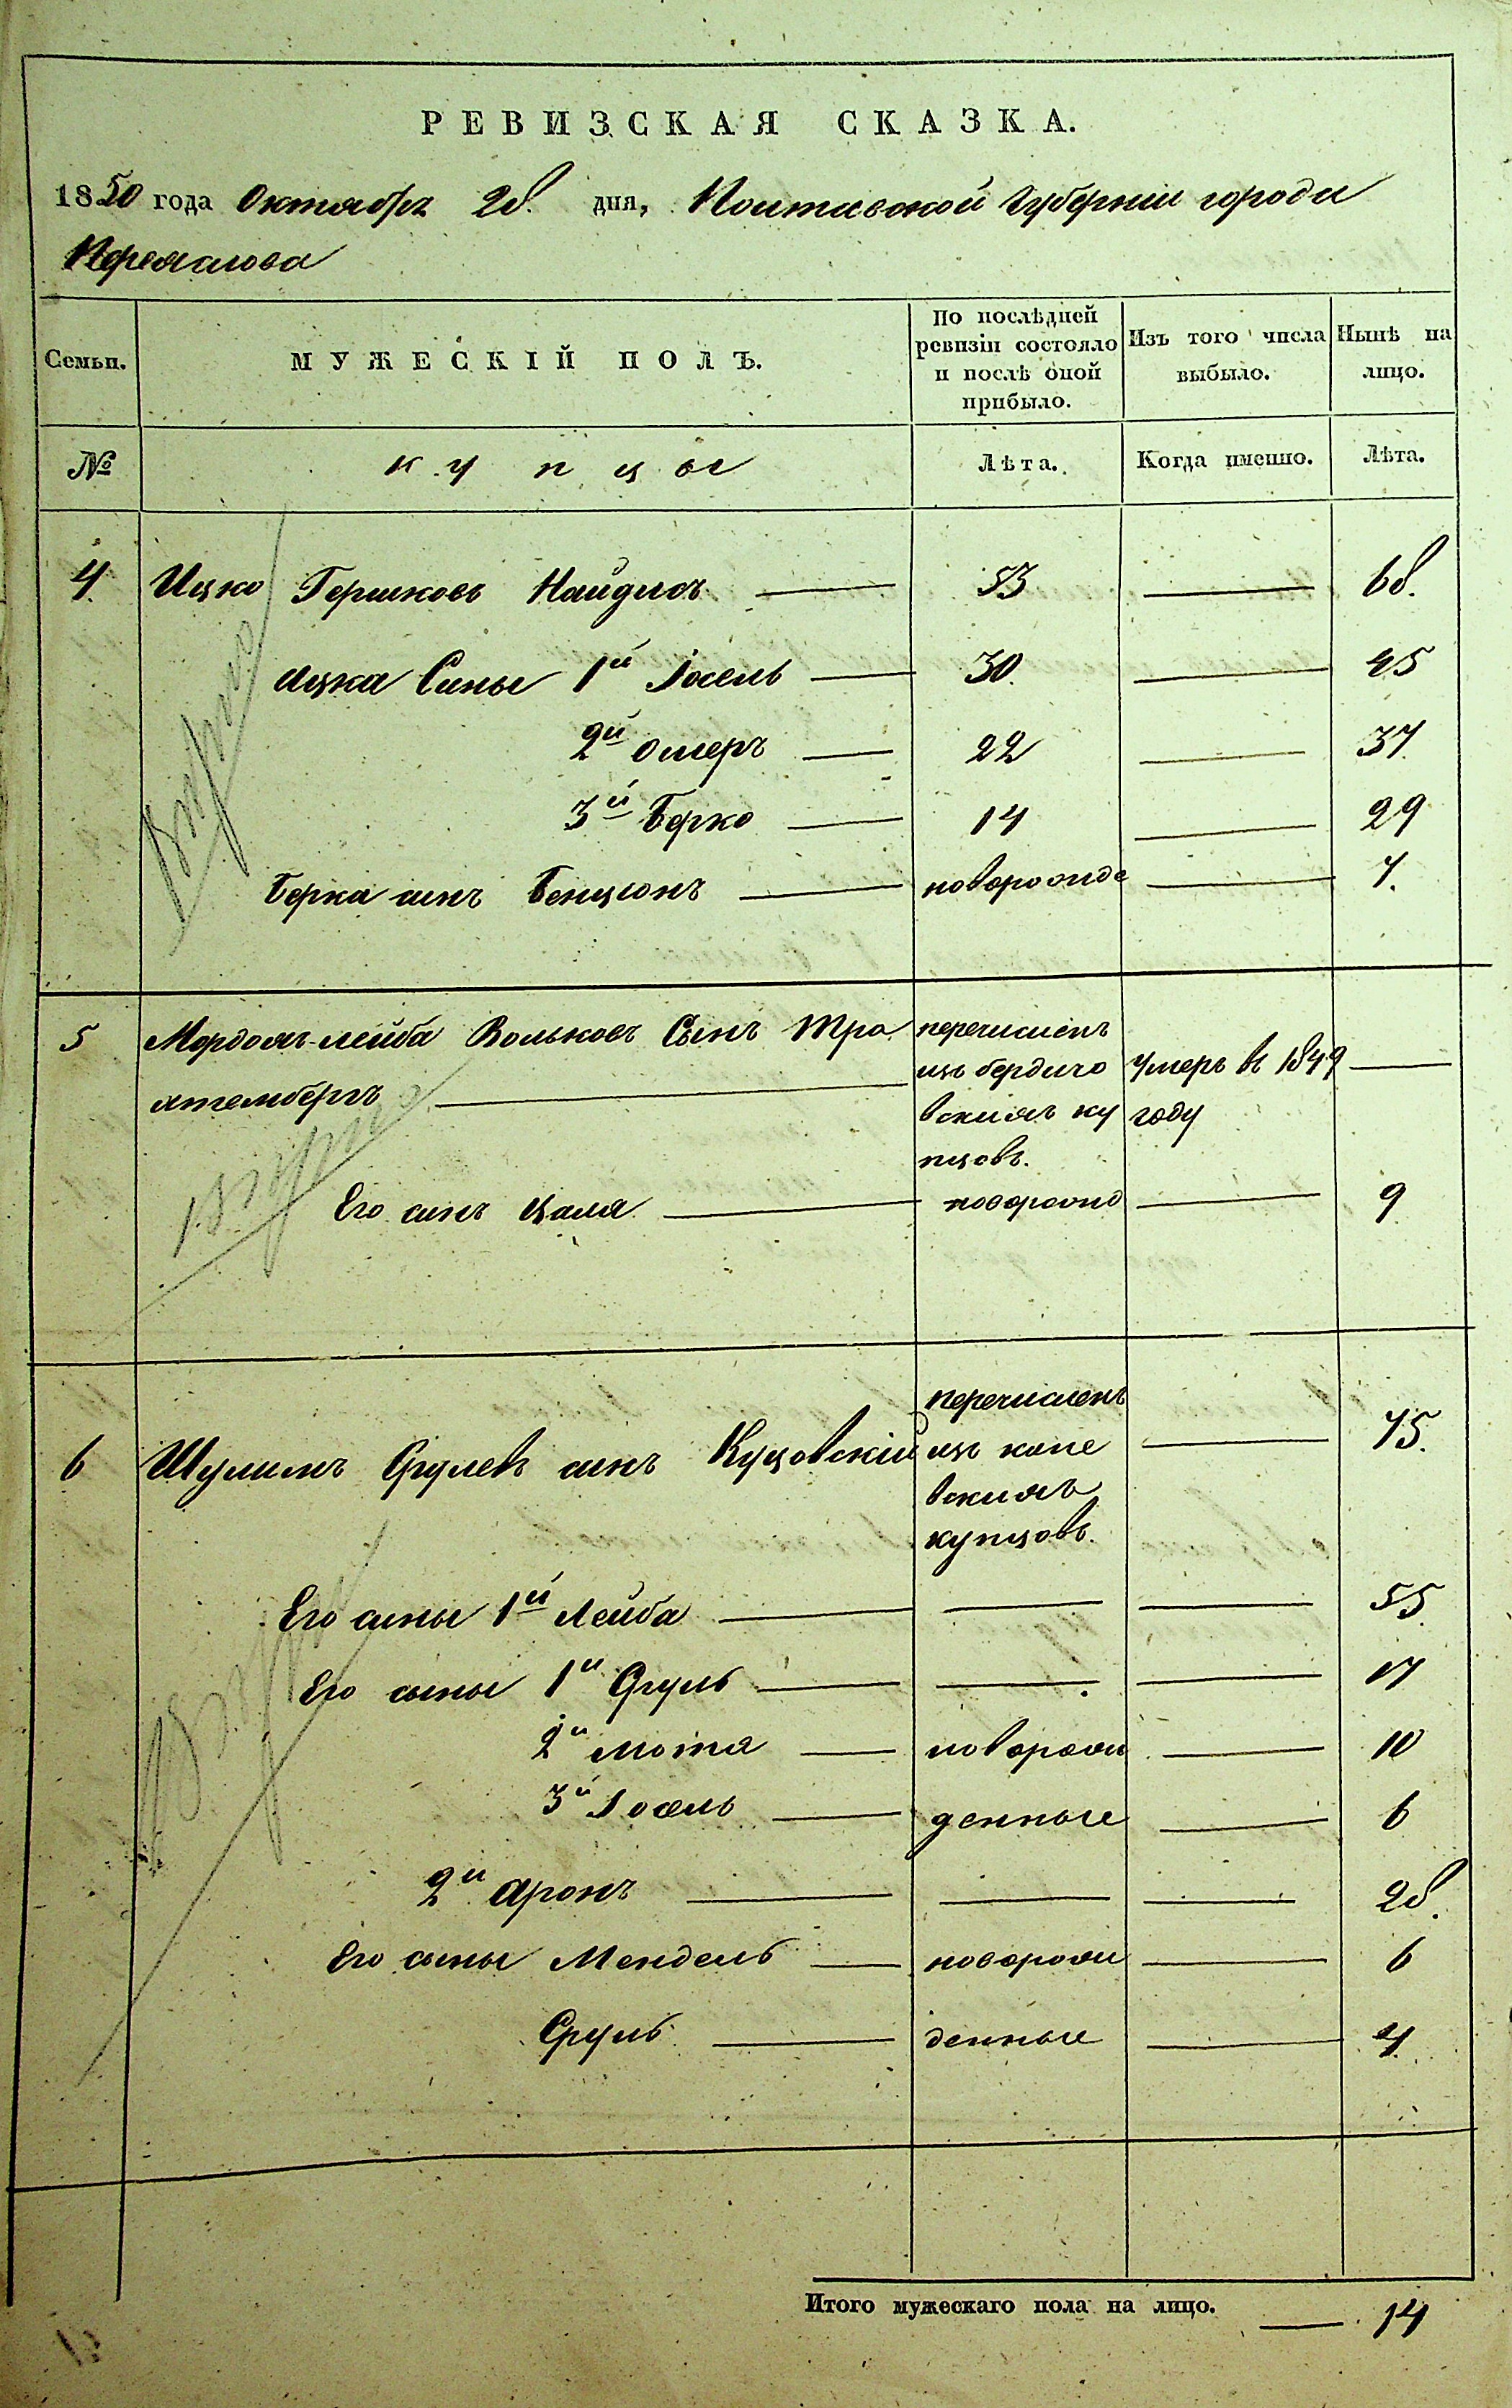 РЕВИЗСКАЯ СКАЗКА.
1850 года Октября 28. дня, Полтавской Губернии города
Переяслова
Семьи. МУЖЕСКІЙ ПОЛЪ. По послѣдней ревизіи состояло и послѣ оной прибыло. Изъ того числа выбыло. Нынѣ на лицо.
№ купцы Лѣта. Когда именно. Лѣта.
4. Ицко Гершковъ Найдисъ 53 68.
Ицка Сины 1й Іосель 30. 45
2й Омеръ 22 37
3й Берко 14 29
Берка синъ Бенціонъ новорожде 7.
5 Мордохъ-лейба Вольковъ Сынъ Тра перечисленъ
хтембергъ изъ бердиче умеръ въ 1849
вскихъ ку году
пцовъ.
Его синъ Цаля новорожд 9
перечисленъ
6 Шулимъ Срулевъ синъ Куцовскій изъ кане 75.
вскихъ
купцовъ.
Его сины 1й Лейба 55.
Его сыны 1й Сруль 17
2й Мотя новорож 10
3й Іосель денные 6
2й Аронъ 28.
Его сыны Мендель новорож 6
Сруль денные 4.
Итого мужескаго пола на лицо. 14